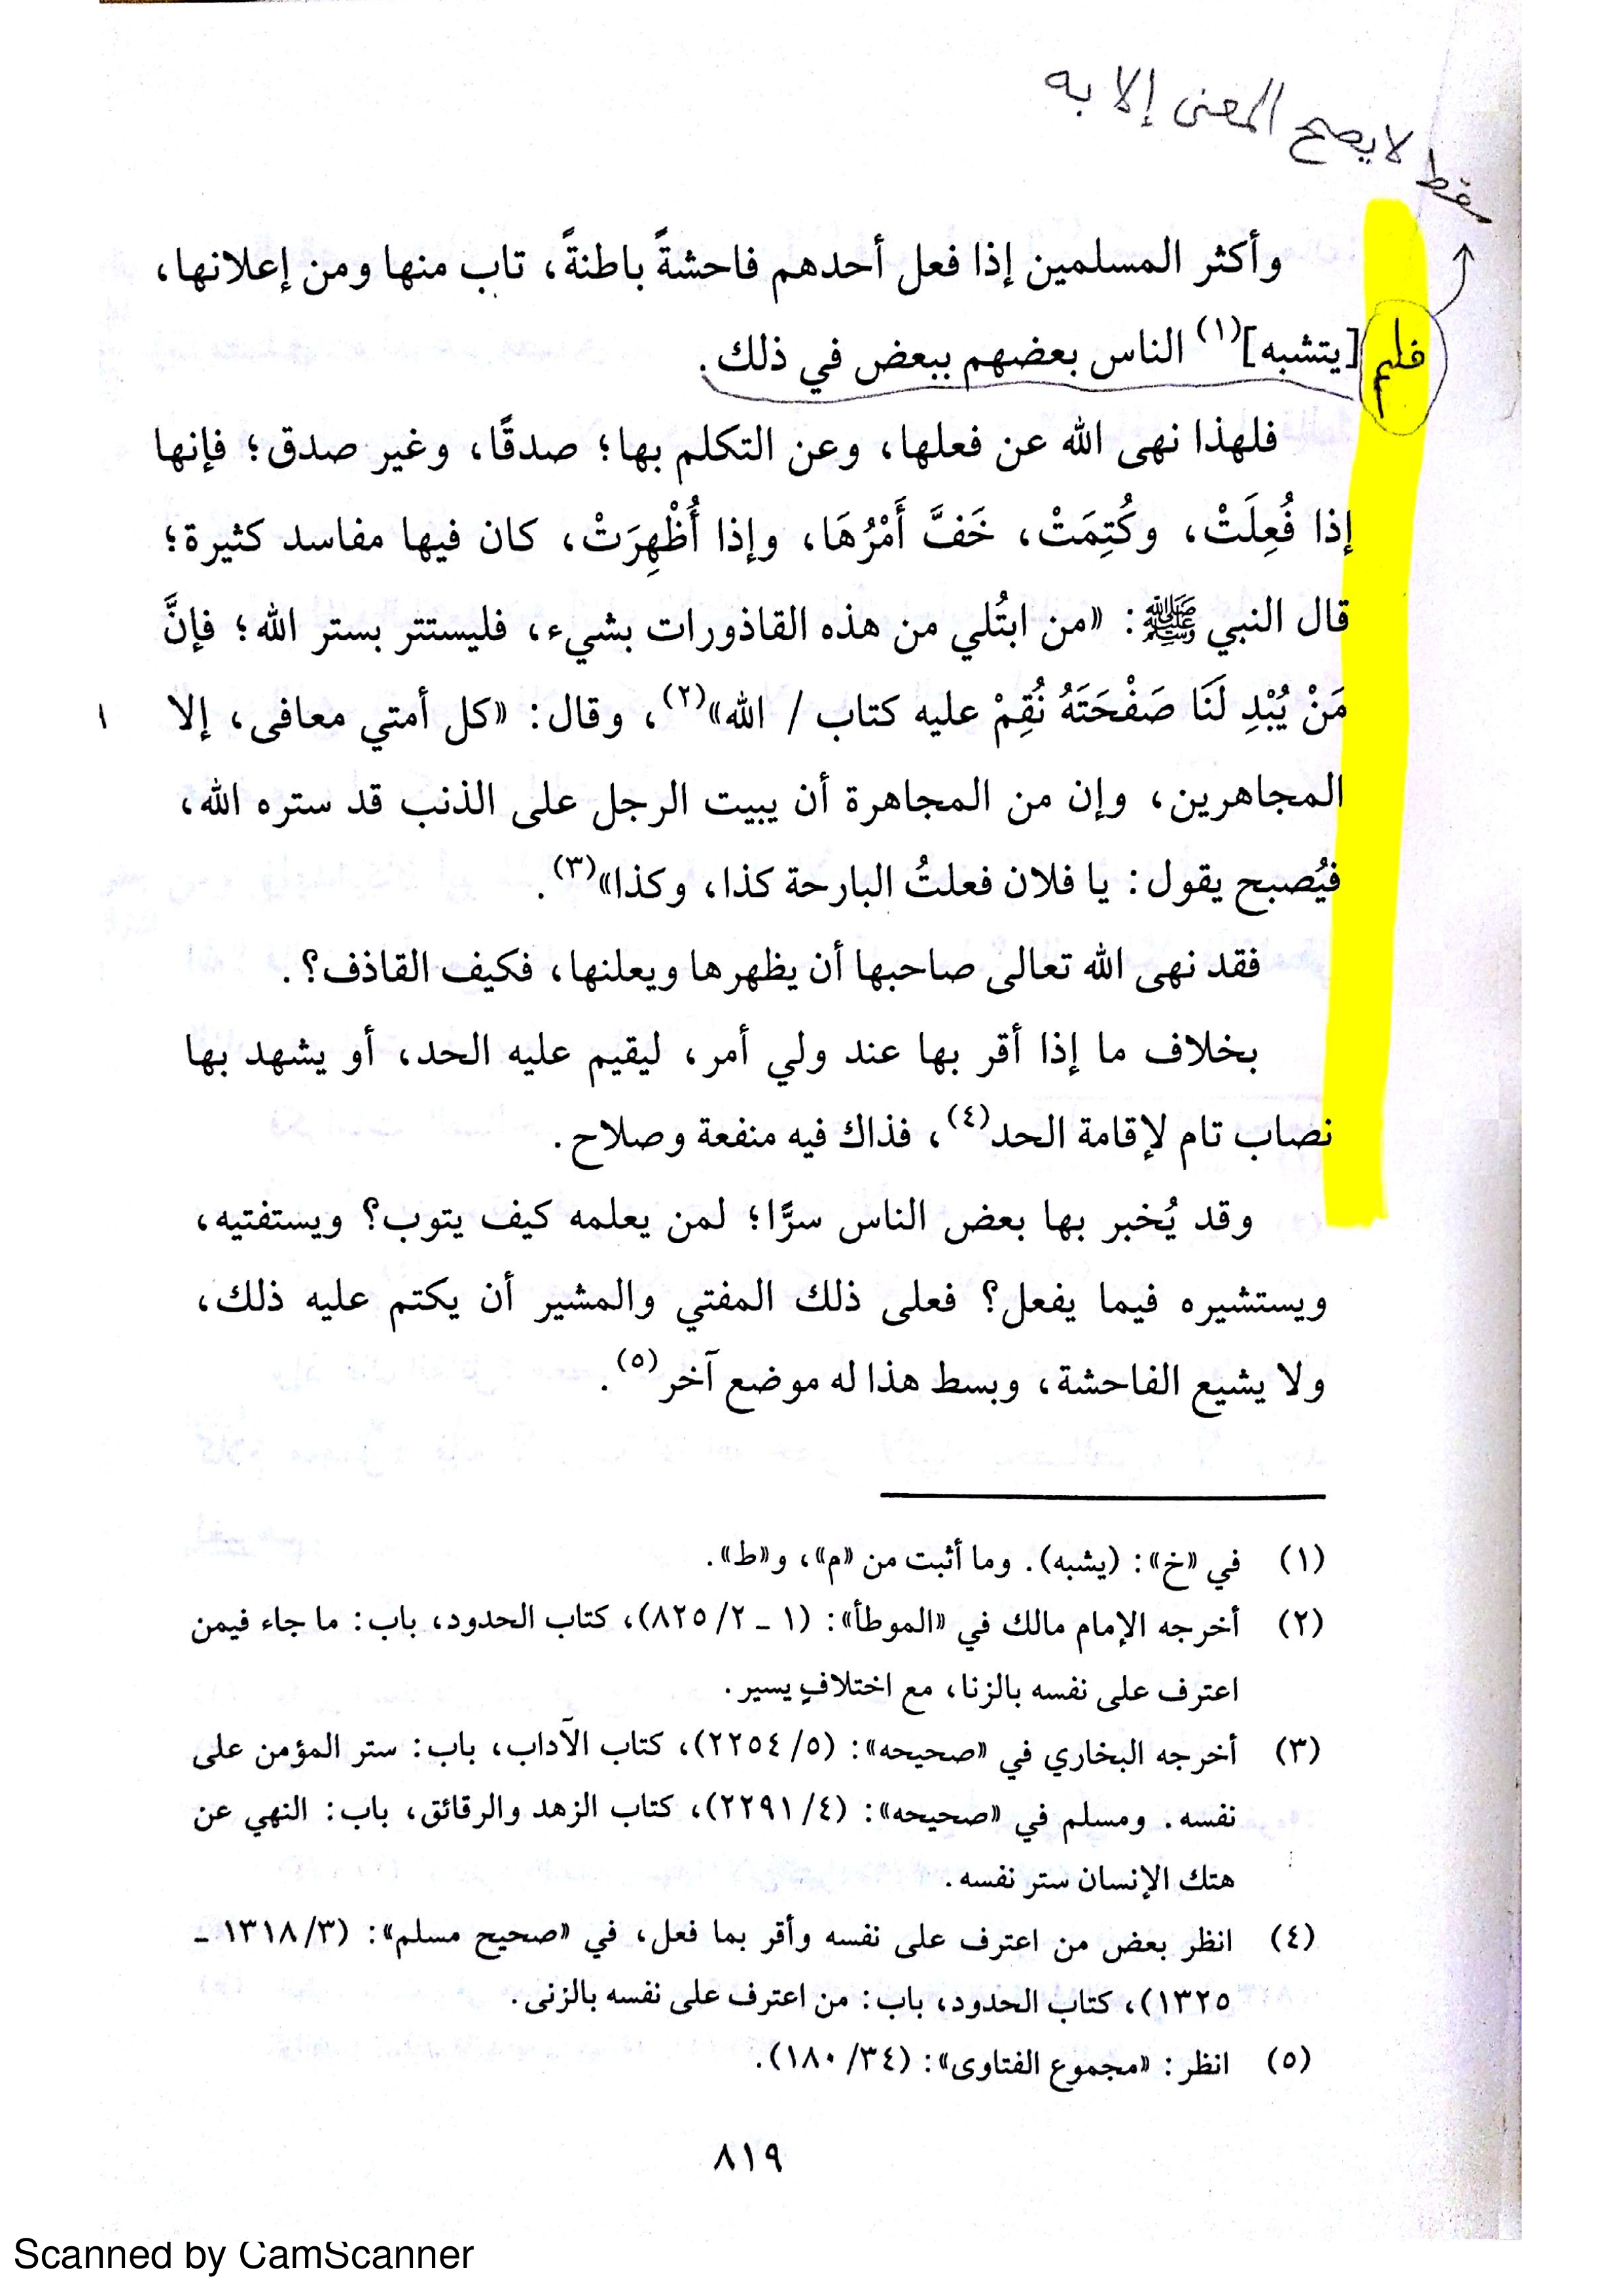 سقط لا يصح المعنى إلا به
وأكثر المسلمين إذا فعل أحدهم فاحشةً باطنةً، تاب منها ومن إعلانها،
فلم [يتشبه](١) الناس بعضهم ببعض في ذلك.
فلهذا نهى الله عن فعلها، وعن التكلم بها؛ صدقًا، وغير صدق؛ فإنها
إذا فُعِلَتْ، وكُتِمَتْ، خَفَّ أَمْرُهَا، وإذا أُظْهِرَتْ، كان فيها مفاسد كثيرة؛
قال النبي ﷺ: «من ابتُلي من هذه القاذورات بشيء، فليستتر بستر الله؛ فإنَّ
مَنْ يُبْدِ لَنَا صَفْحَتَهُ نُقِمْ عليه كتاب / الله»(٢)، وقال: «كل أمتي معافى، إلا ١
المجاهرين، وإن من المجاهرة أن يبيت الرجل على الذنب قد ستره الله،
فيُصبح يقول: يا فلان فعلتُ البارحة كذا، وكذا»(٣).
فقد نهى الله تعالى صاحبها أن يظهرها ويعلنها، فكيف القاذف؟.
بخلاف ما إذا أقر بها عند ولي أمر، ليقيم عليه الحد، أو يشهد بها
نصاب تام لإقامة الحد(٤)، فذاك فيه منفعة وصلاح.
وقد يُخبر بها بعض الناس سرًّا؛ لمن يعلمه كيف يتوب؟ ويستفتيه،
ويستشيره فيما يفعل؟ فعلى ذلك المفتي والمشير أن يكتم عليه ذلك،
ولا يشيع الفاحشة، وبسط هذا له موضع آخر(٥).
(١) في «خ»: (يشبه). وما أثبت من «م»، و«ط».
(٢) أخرجه الإمام مالك في «الموطأ»: (١ ـ ٨٢٥/٢)، كتاب الحدود، باب: ما جاء فيمن
اعترف على نفسه بالزنا، مع اختلافٍ يسير.
(٣) أخرجه البخاري في «صحيحه»: (٢٢٥٤/٥)، كتاب الآداب، باب: ستر المؤمن على
نفسه. ومسلم في «صحيحه»: (٢٢٩١/٤)، كتاب الزهد والرقائق، باب: النهي عن
هتك الإنسان ستر نفسه.
(٤) انظر بعض من اعترف على نفسه وأقر بما فعل، في «صحيح مسلم»: (١٣١٨/٣ ـ
١٣٢٥)، كتاب الحدود، باب: من اعترف على نفسه بالزنى.
(٥) انظر: «مجموع الفتاوى»: (١٨٠/٣٤).
٨١٩
Scanned by CamScanner